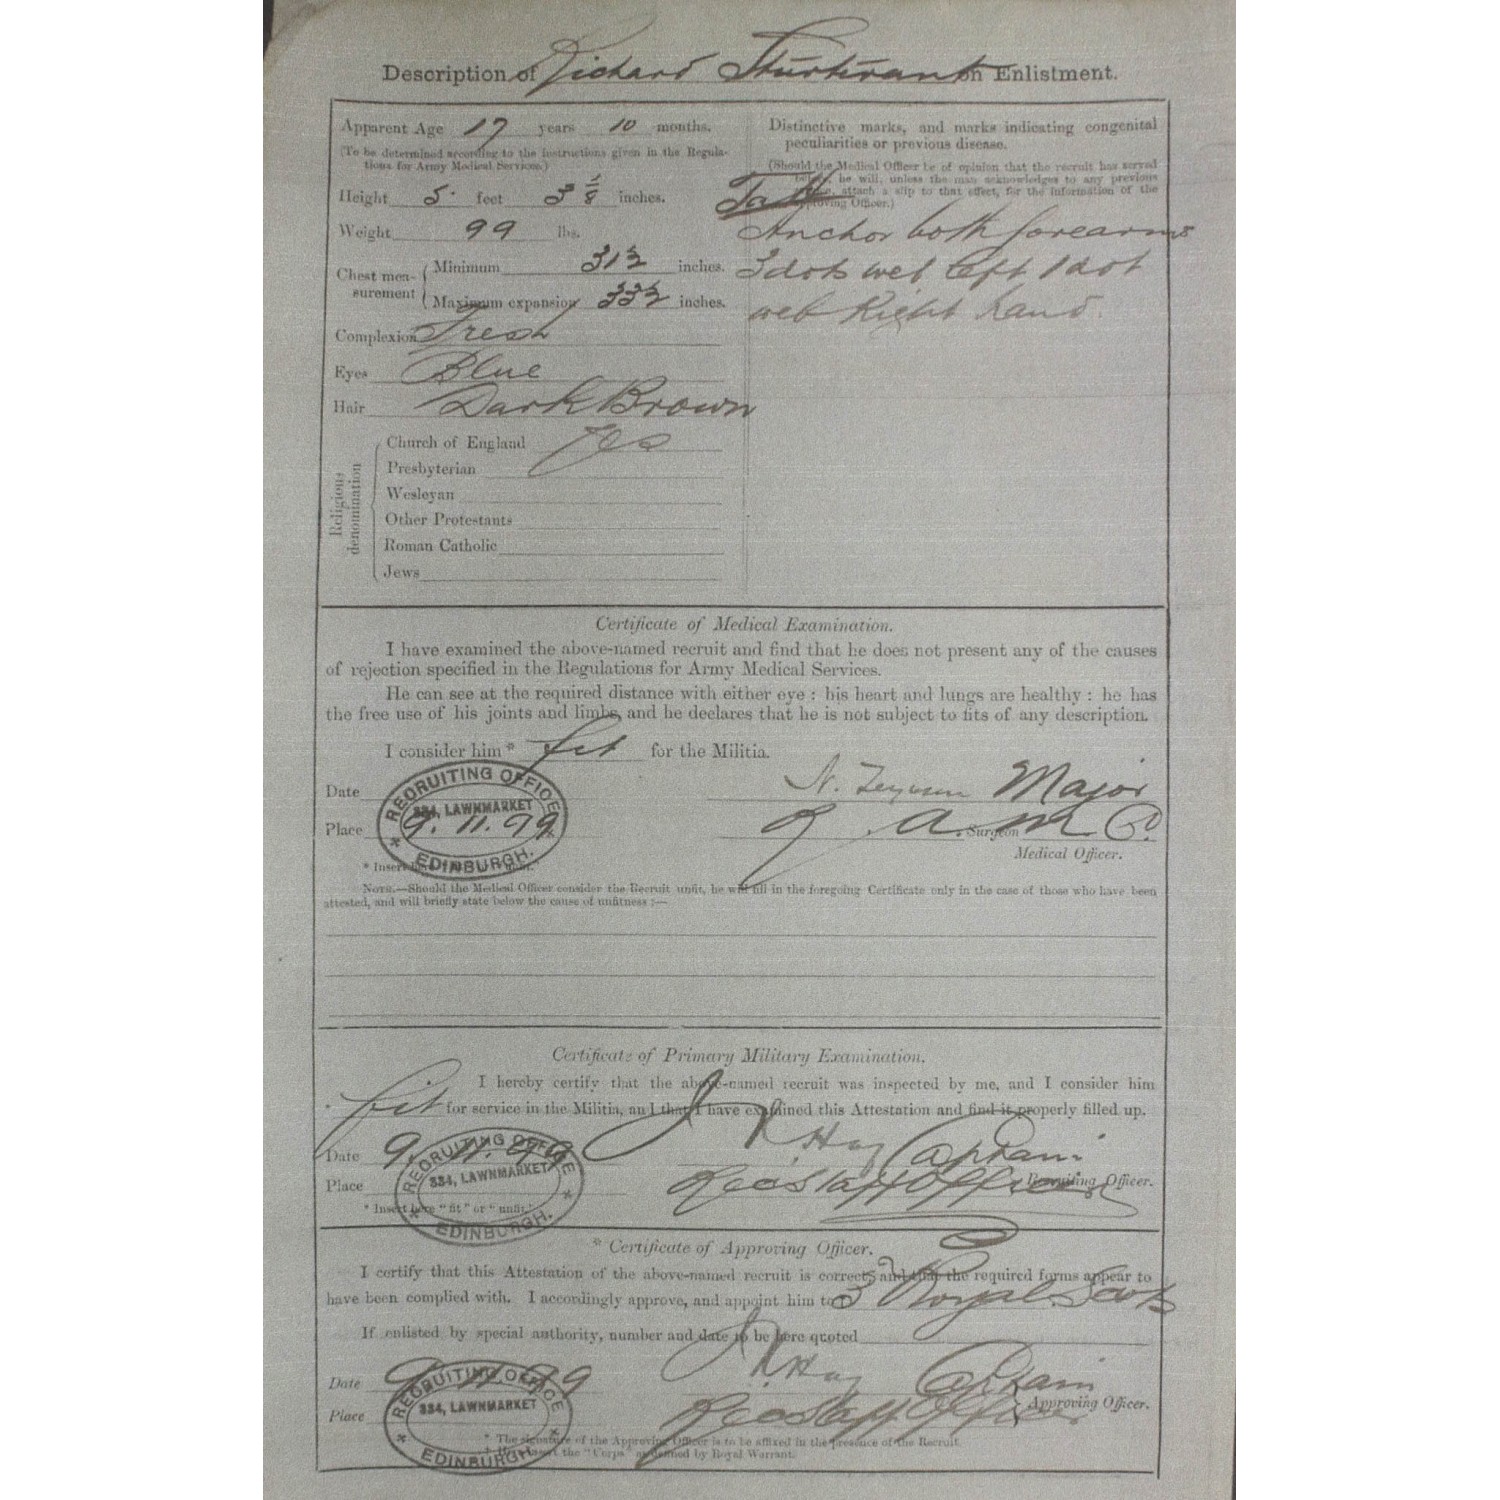 Description of Richard Sturtivant on Enlistment.
Apparent Age 17 years 10 months.
(To be determined according to the instructions given in the Regula-
tions for Army Medical Services.)
Height 5 feet 3 1/8 inches.
Weight 99 lbs.
Chest mea-
surement
Minimum 31 1/2 inches.
Maximum expansion 33 1/2 inches.
Complexion Fresh
Eyes Blue
Hair Dark Brown
Religious
denomination
Church of England Yes
Presbyterian
Wesleyan
Other Protestants
Roman Catholic
Jews
Distinctive marks, and marks indicating congenital
peculiarities or previous disease.
(Should the Medical Officer be of opinion that the recruit has served
before, he will, unless the man acknowledges to any previous
attach a slip to that effect, for the information of the
Approving Officer.)
Anchor both forearms
3 dots web left 1 dot
web Right hand.
Certificate of Medical Examination.
I have examined the above-named recruit and find that he does not present any of the causes
of rejection specified in the Regulations for Army Medical Services.
He can see at the required distance with either eye : his heart and lungs are healthy : he has
the free use of his joints and limbs, and he declares that he is not subject to fits of any description.
I consider him * fit for the Militia.
Date
Place
RECRUITING OFFICE
334, LAWNMARKET
9.11.99
EDINBURGH.
Major
R.A.M.C.
Surgeon
Medical Officer.
* Insert here
NOTE.—Should the Medical Officer consider the Recruit unfit, he will fill in the foregoing Certificate only in the case of those who have been
attested, and will briefly state below the cause of unfitness :—
Certificate of Primary Military Examination.
I hereby certify that the above-named recruit was inspected by me, and I consider him
* fit for service in the Militia, and that I have examined this Attestation and find it properly filled up.
Date 9.11.99
Place
RECRUITING OFFICE
334, LAWNMARKET
EDINBURGH.
Hay Captain
Rec Staff Officer
Recruiting Officer.
* Insert here "fit" or "unfit."
* Certificate of Approving Officer.
I certify that this Attestation of the above-named recruit is correct, and that the required forms appear to
have been complied with. I accordingly approve, and appoint him to 3 Royal Scots
If enlisted by special authority, number and date to be here quoted
Date 9.11.99
Place
RECRUITING OFFICE
334, LAWNMARKET
EDINBURGH.
Hay Captain
Rec Staff Officer
Approving Officer.
* The signature of the Approving Officer is to be affixed in the presence of the Recruit.
the "Corps" as defined by Royal Warrant.